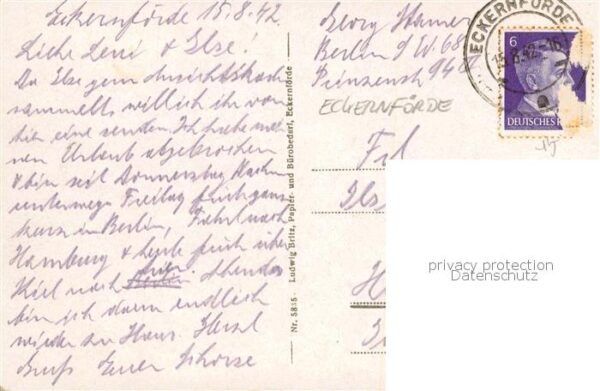 Eckernförde 15.8.42
Liebe Leni & Ilse!
Da Ilse gern Ansichtskarten
sammelt, will ich ihr von
hier eine senden. Ich habe mei-
nen Urlaub abgebrochen
& bin seit Donnerstag Nachm.
unterwegs Freitag früh ganz
kurz in Berlin, Fahrt nach
Hamburg & heute früh über
Kiel nach hier. Abends
bin ich dann endlich
wieder zu Haus. Herzl
Gruß Euer Schorse
Nr. 5835 Ludwig Britz, Papier- und Bürobedarf, Eckernförde
Georg
Berlin S W. 68
Prinzenstr 94
ECKERNFÖRDE
ECKERNFÖRDE
15.8.42
6
DEUTSCHES R
Frl
Ils
H
privacy protection
Datenschutz